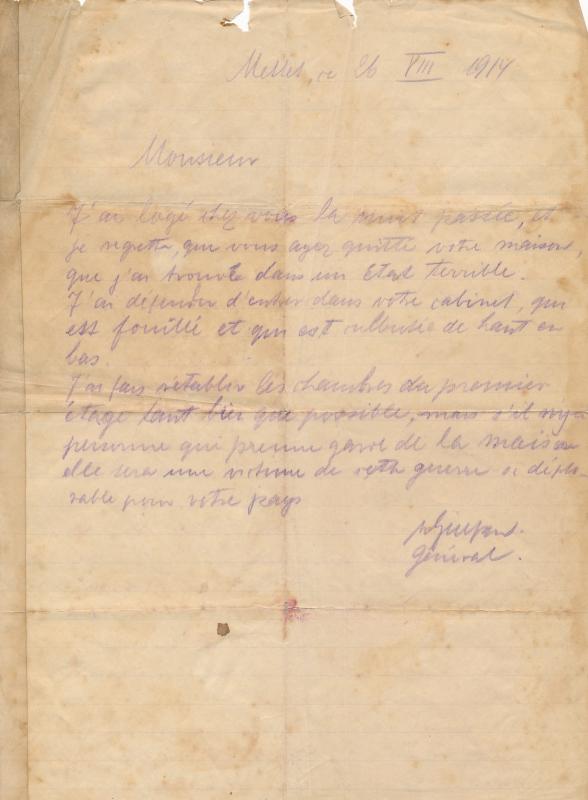 Mellet, ce 26 VIII 1914
Monsieur
J'ai logé chez vous la nuit passée, et
je regrette, que vous ayez quitté votre maison,
que j'ai trouvée dans un état terrible.
J'ai défendu d'entrer dans votre cabinet, qui
est fouillé et qui est culbutée de haut en
bas.
J'ai fais rétablir les chambres du premier
étage tant bien que possible, mais s'il n'y a
personne qui prenne garde de la maison
elle sera une victime de cette guerre si déplo-
rable pour votre pays
Général.